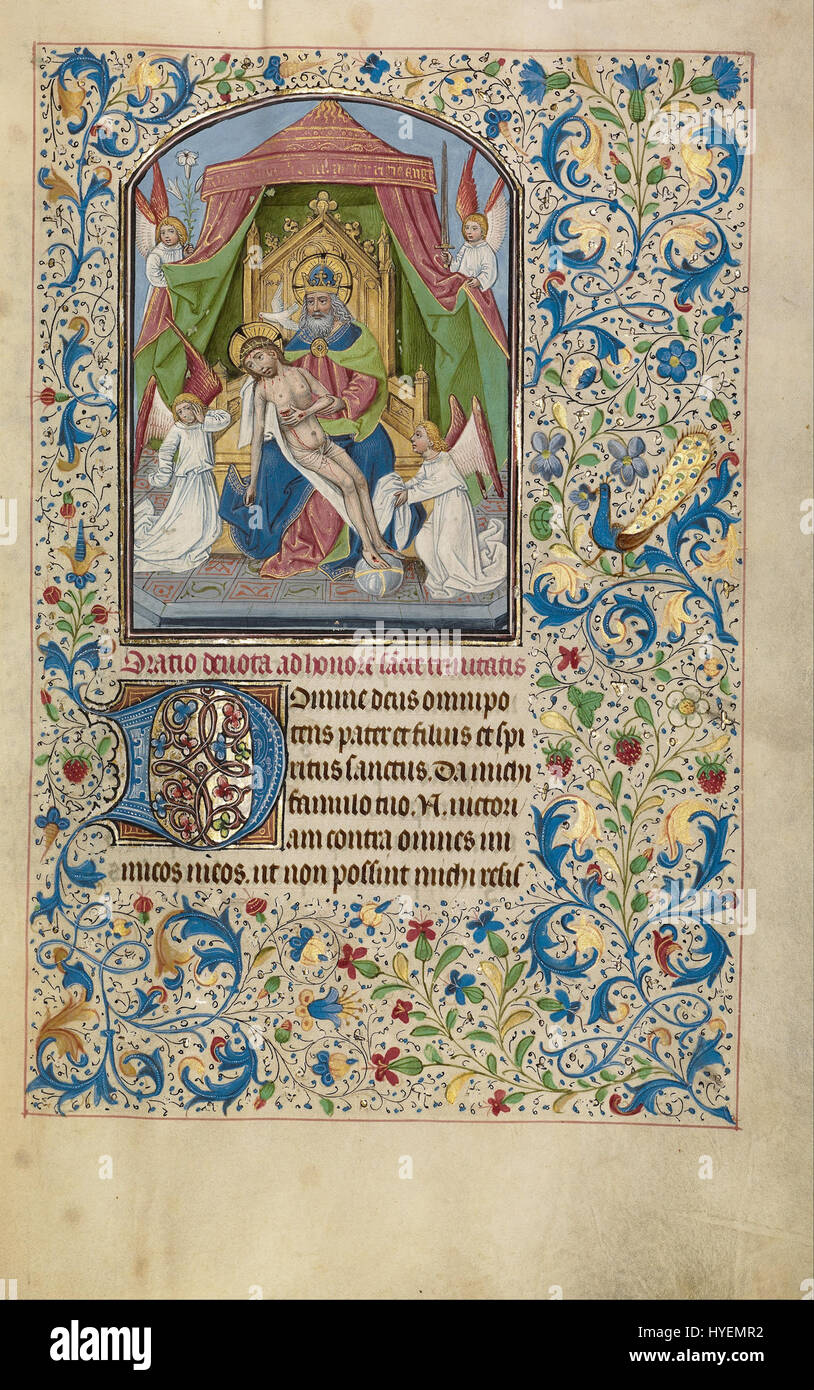 Oratio devota ad honorē sācte trinitatis
Domine deus omnipo
tens pater et filius et spi
ritus sanctus. Da michi
famulo tuo. N. victori
am contra omnes ini
micos meos. ut non possint michi resis
alamy
Image ID: HYEMR2
www.alamy.com